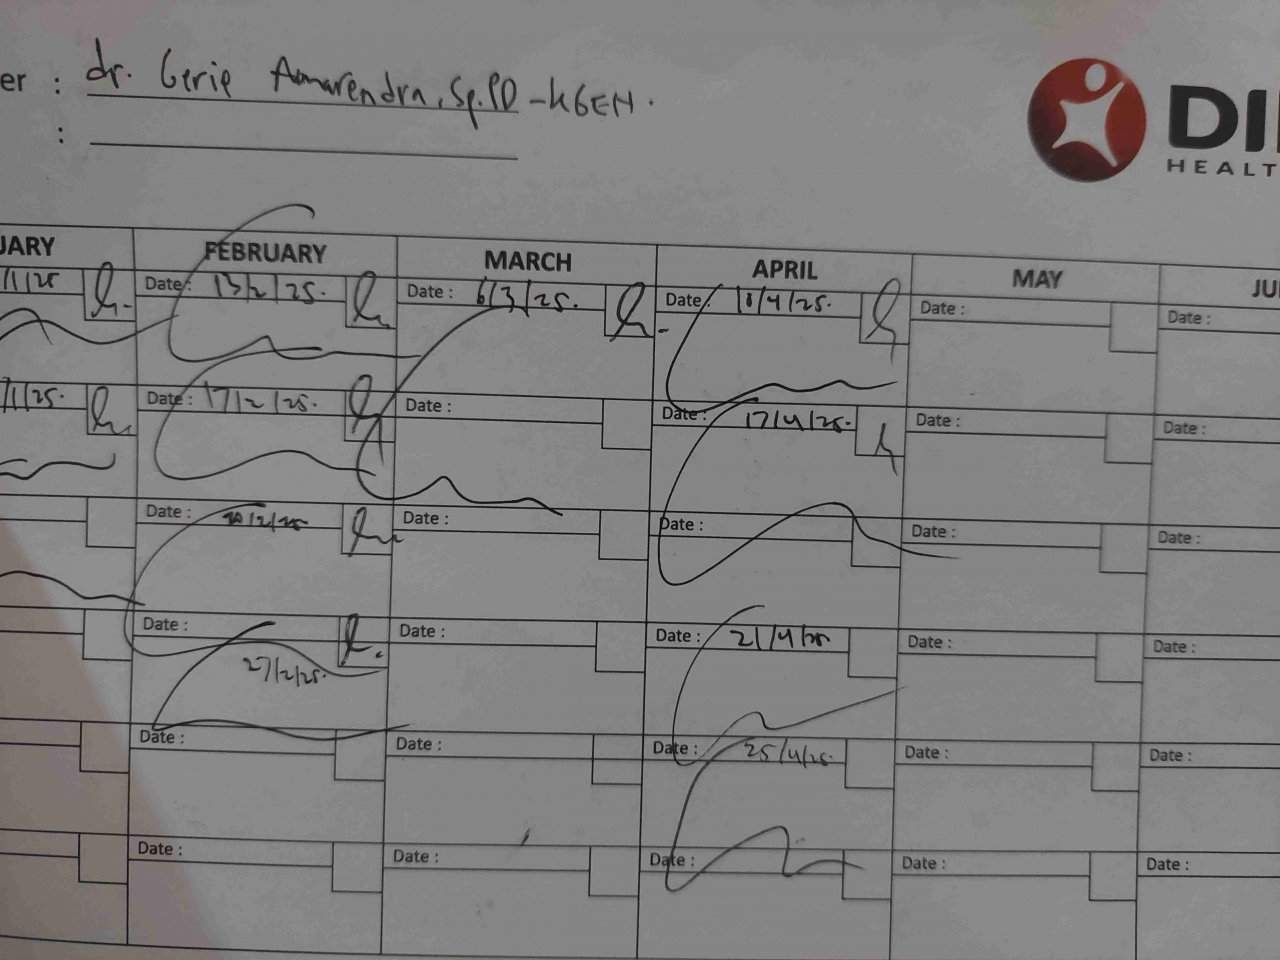 er : dr. Gerie Amarendra, Sp.PD - KGEH.
:
DI
HEALT
UARY FEBRUARY MARCH APRIL MAY JU
/1/25 Date : 13/2/25. Date : 6/3/25. Date : 10/4/25. Date : Date :
/1/25. Date : 17/2/25. Date : Date : 17/4/25. Date : Date :
Date : /2/25 Date : Date : Date : Date :
Date : 27/2/25. Date : Date : 21/4/25 Date : Date :
Date : Date : Date : 25/4/25. Date : Date :
Date : Date : Date : Date : Date :